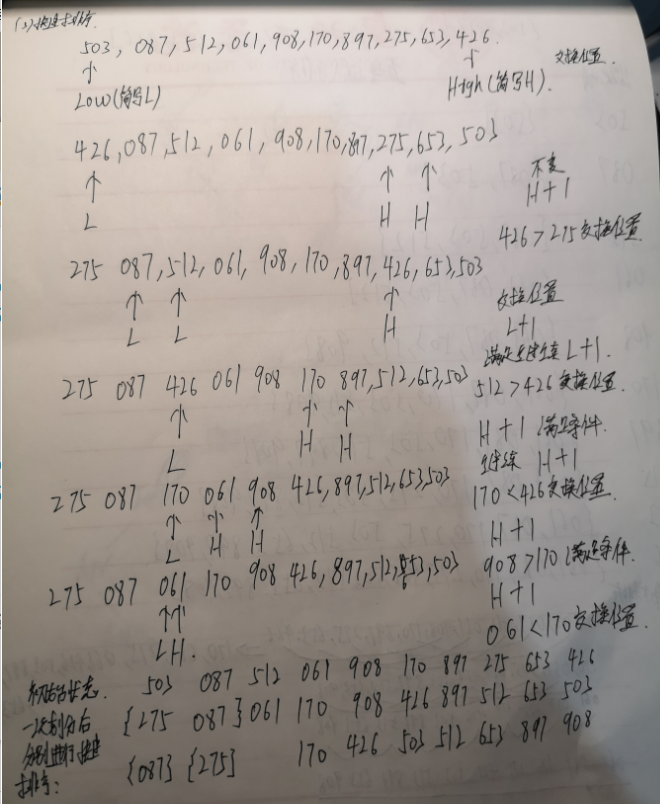 (2)快速排序
503, 087, 512, 061, 908, 170, 897, 275, 653, 426. 交换位置.
Low(简写L) High(简写H).
426, 087, 512, 061, 908, 170, 897, 275, 653, 503
不变
L H H H+1
426>275交换位置
275 087, 512, 061, 908, 170, 897, 426, 653, 503
交换位置
L L H L+1
满足继续 L+1.
275 087 426 061 908 170 897, 512, 653, 503 512>426交换位置.
L H H H+1 满足条件.
继续 H+1
275 087 170 061 908 426, 897, 512, 653, 503 170<426交换位置
L H H H+1
275 087 061 170 908 426, 897, 512, 653, 503 908>170满足条件.
H+1
LH. 061<170交换位置.
初始状态. 503 087 512 061 908 170 897 275 653 426
一次划分后 {275 087} 061 170 908 426 897 512 653 503
分别进行快速 {087} {275} 170 426 503 512 653 897 908
排序: